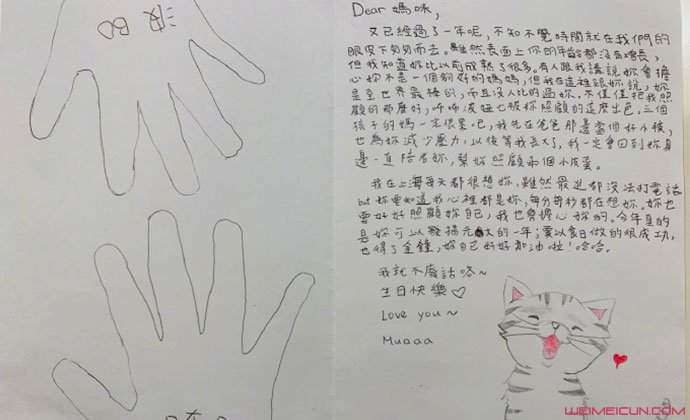 Dear 媽咪,
又已經過了一年呢,不知不覺時間就在我們的
眼皮下匆匆而去。雖然表面上你的年齡都沒有增長,
但我知道妳比以前成熟了很多。有人跟我講說妳會擔
心妳不是一個夠好的媽媽,但我在這裡跟妳說,妳
是全世界最棒的,而且沒人比的過妳,不僅僅把我照
顧的那麼好,哼哼波妞也被妳照顧的這麼出色,三個
孩子的媽一定很累吧,我先在爸爸那邊當個好小孩,
也為妳減少壓力,以後等我長大了,我一定會回到妳身
邊一直陪著妳,幫妳照顧兩個小皮蛋。
我在上海每天都很想妳,雖然最近都沒法打電話
but 妳要知道我心裡都是妳,每分每秒都在想妳。妳也
要好好照顧妳自己,我也會擔心妳的。今年真的
是妳可以發揚光大的一年;食日做的很成功,
也得了金鐘,妳自己好好加油啦!哈哈。
我就不廢話咯~
生日快樂♡
Love you~
Muaaa
波 BO
WEIMEICUN.COM